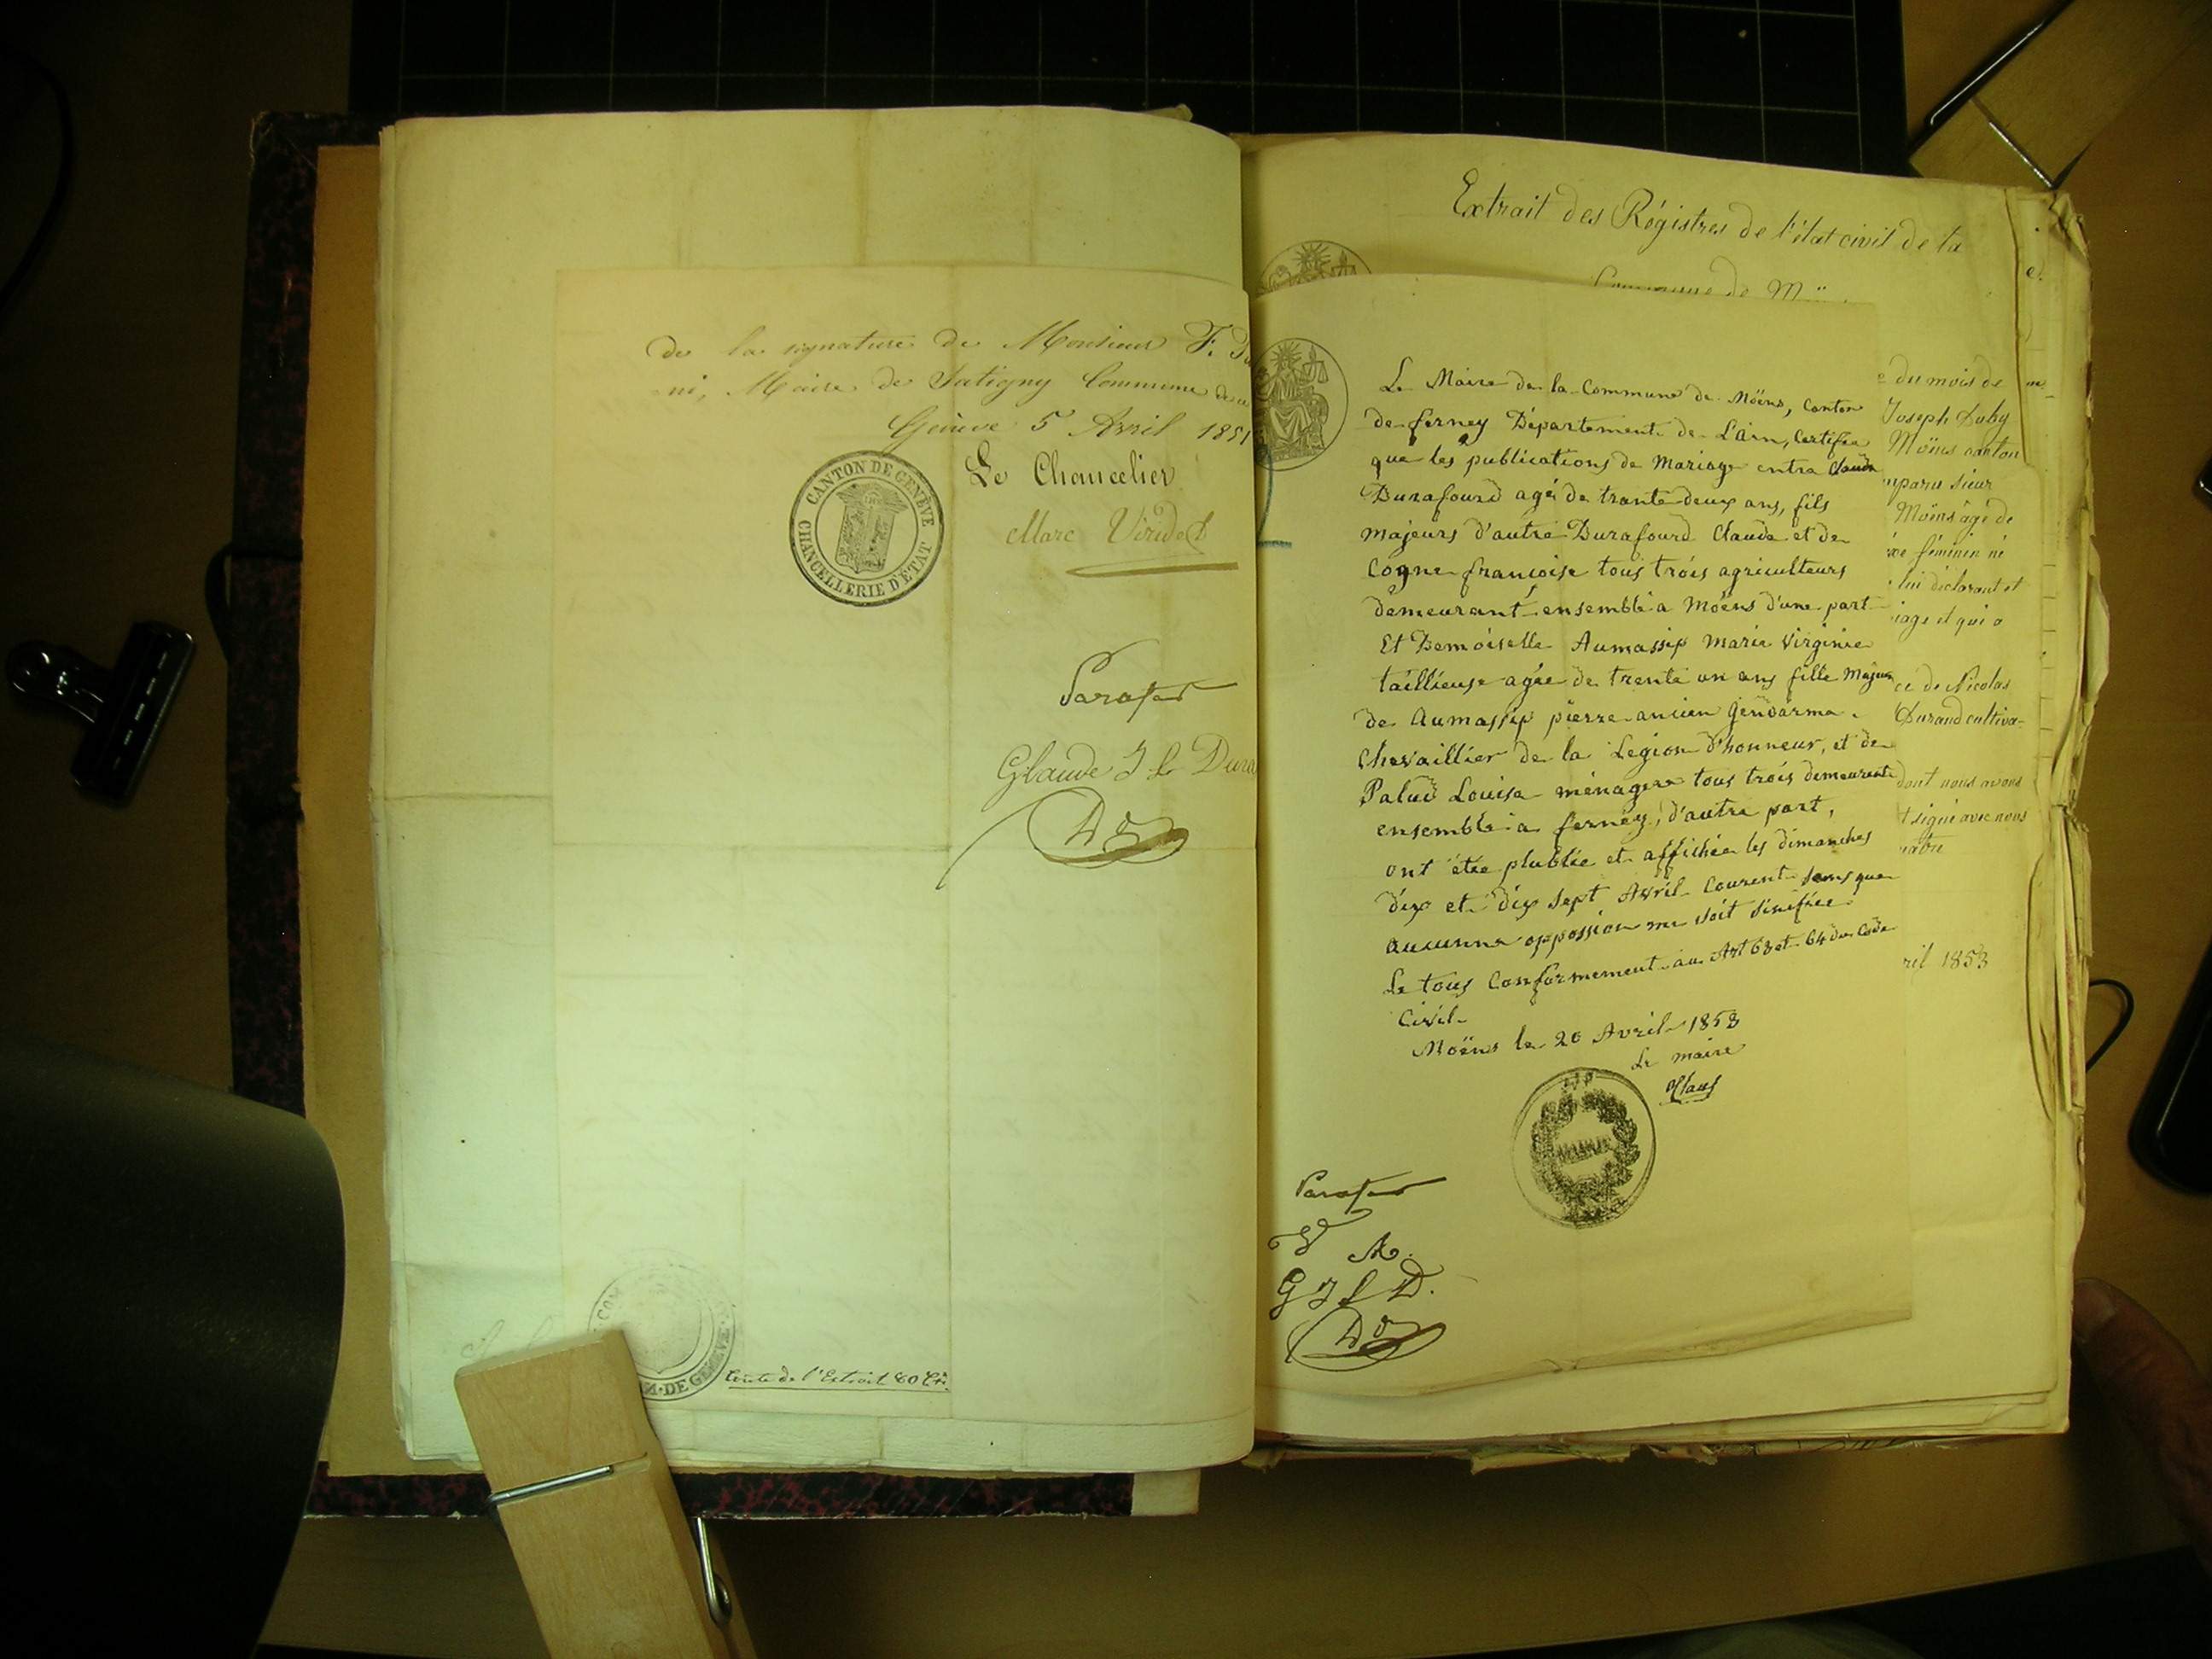 de la signature de Monsieur F.
ni, Maire de Satigny Commune de ce
Genève 5 Avril 1851
Le Chancelier
Marc Viridet
CANTON DE GENÈVE
CHANCELLERIE D'ÉTAT
Parafer
Glaude J L Dura
DD
DE GENÈVE
Coute de l'Extrait 80 Ct.
Extrait des Régistres de l'état civil de la
Commune de
Le Maire de la Commune de Möens, Canton
de ferney Département de L'ain, Certifie
que les publications de Mariage entre Claude
Durafourd agé de trante deux ans, fils
majeurs d'autre Durafourd Claude et de
Cogne francoise tous trois agriculteurs
demeurant ensemble a Möens d'une part
Et Demoiselle Aumassip Marie Virginie
taillieuse agée de trente un ans fille Majeur
de Aumassip pierre ancien Gendarme
Chevaillier de la Legion d'honneur, et de
Palud Louise ménagere tous trois demeurente
ensemble a ferney, d'autre part,
ont été plubliée et affichée les dimanches
dix et dix sept Avril Courent sans que
aucunne oppossion me soit sinifiée
Le tous Conformement au Art 63 et 64 du Code
Civil
Möens le 20 Avril 1853
Le maire
MAIRIE
Parafer
M.
G J L D.
DD
e du mois de
Joseph Duby
Möens canton
mparu sieur
Möens âgé de
xe féminin né
lui déclarant et
iage et qui a
ce de Nicolas
Durand cultiva-
dont nous avons
t signé avec nous
ril 1853